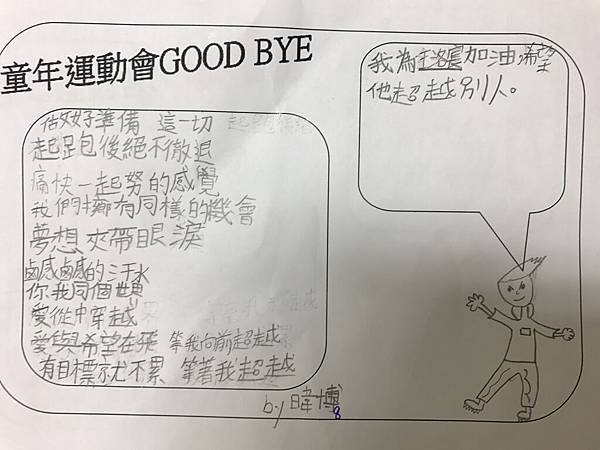 童年運動會GOOD BYE
做好準備 這一切
起跑後絕不撤退
痛快一起努的感覺
我們擁有同樣的機會
夢想夾帶眼淚
鹹鹹的汗水
你我同個世界
愛從中穿越
愛與希望在飛 等我向前超越
有目標就不累 等著我超越
by 暐博
8
我為王洛宸加油,希望
他超越別人。